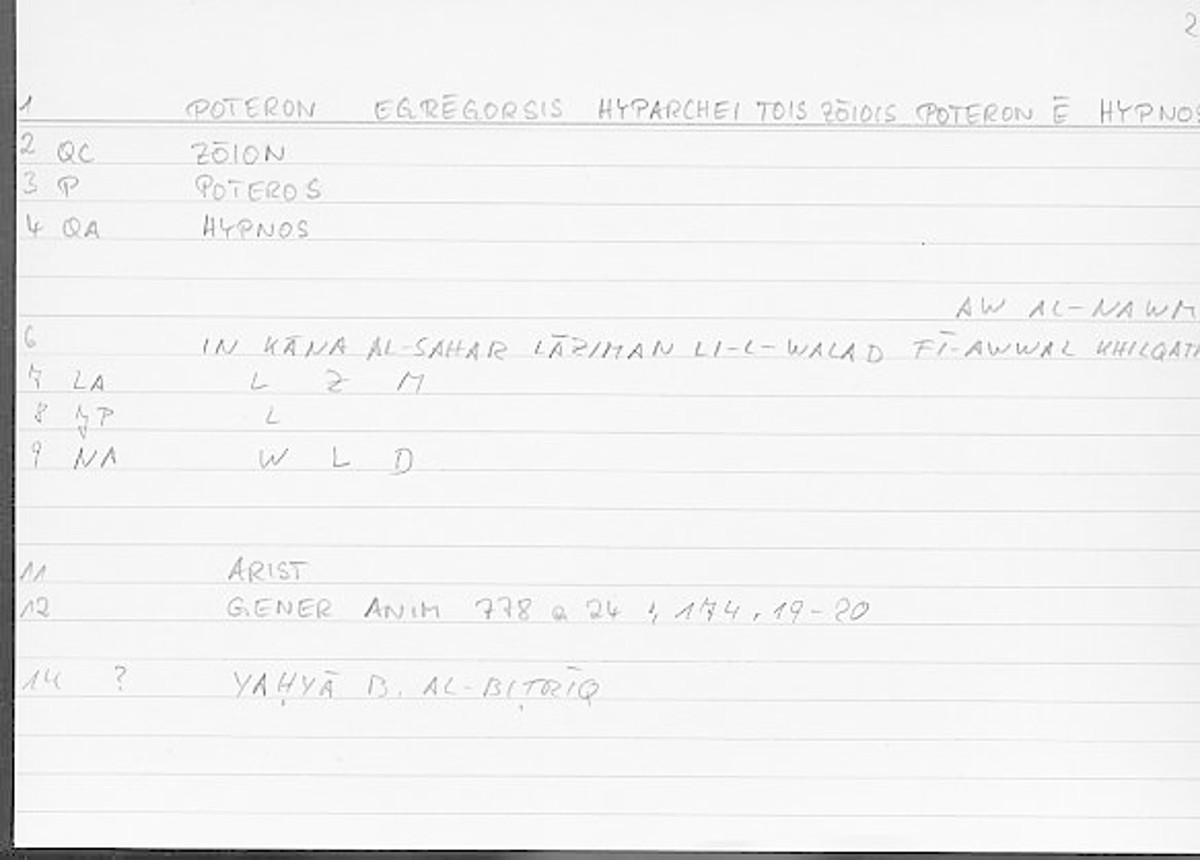 2
1 POTERON EGRĒGORSIS HYPARCHEI TOIS ZŌIOIS POTERON Ē HYPNOS
2 QC ZŌION
3 P POTEROS
4 QA HYPNOS
AW AL-NAWM
6 IN KĀNA AL-SAHAR LĀZIMAN LI-L-WALAD FĪ-AWWAL KHILQATI
7 LA L Z M
8 JP L
9 NA W L D
11 ARIST
12 GENER ANIM 778 a 24 ; 174, 19-20
14 ? YAḤYĀ B. AL-BIṬRĪQ